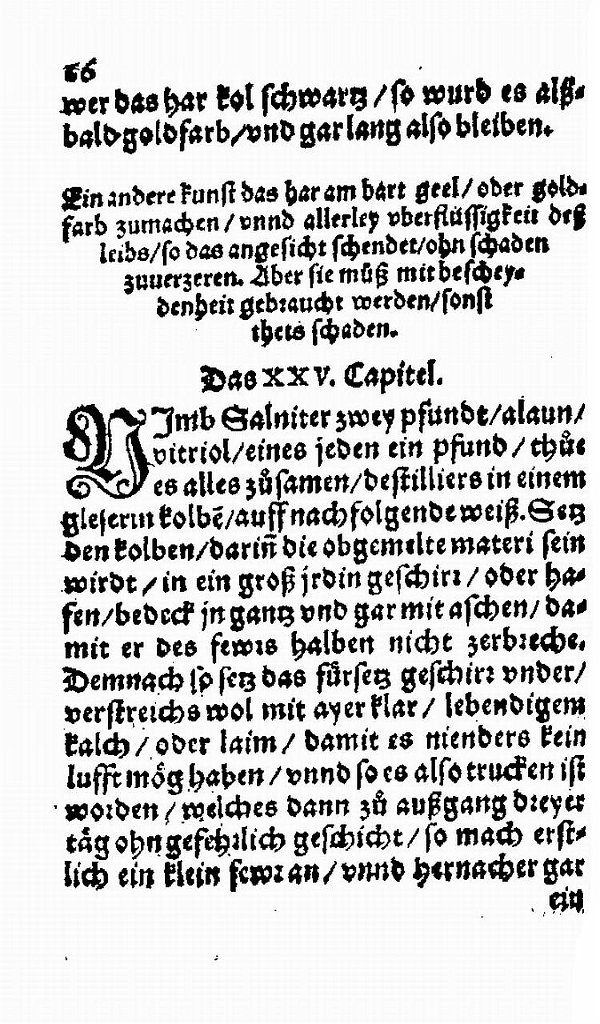 66
wer das har kol schwartz / so wurd es alß⸗
bald goldfarb/vnd gar lang also bleiben.
Ein andere kunst das har am bart geel/ oder gold⸗
farb zumachen / vnnd allerley vberflüssigkeit deß
leibs/so das angesicht schendet/ohn schaden
zuuerzeren. Aber sie müß mit beschey⸗
denheit gebraucht werden/sonst
thets schaden.
Das XXV. Capitel.
NImb Salniter zwey pfundt/alaun/
vitriol/eines jeden ein pfund / thůe
es alles zůsamen/destilliers in einem
gleserin kolbē/auff nachfolgende weiß. Setz
den kolben/darin̄ die obgemelte materi sein
wirdt / in ein groß jrdin geschirr / oder ha⸗
fen/bedeck jn gantz vnd gar mit aschen/ da⸗
mit er des fewrs halben nicht zerbreche.
Demnach so setz das fürsetz geschirr vnder/
verstreichs wol mit ayer klar / lebendigem
kalch / oder laim / damit es nienders kein
lufft mög haben / vnnd so es also trucken ist
worden / welches dann zů außgang dreyer
täg ohngefehrlich geschicht / so mach erst⸗
lich ein klein fewr an / vnnd hernacher gar
ein